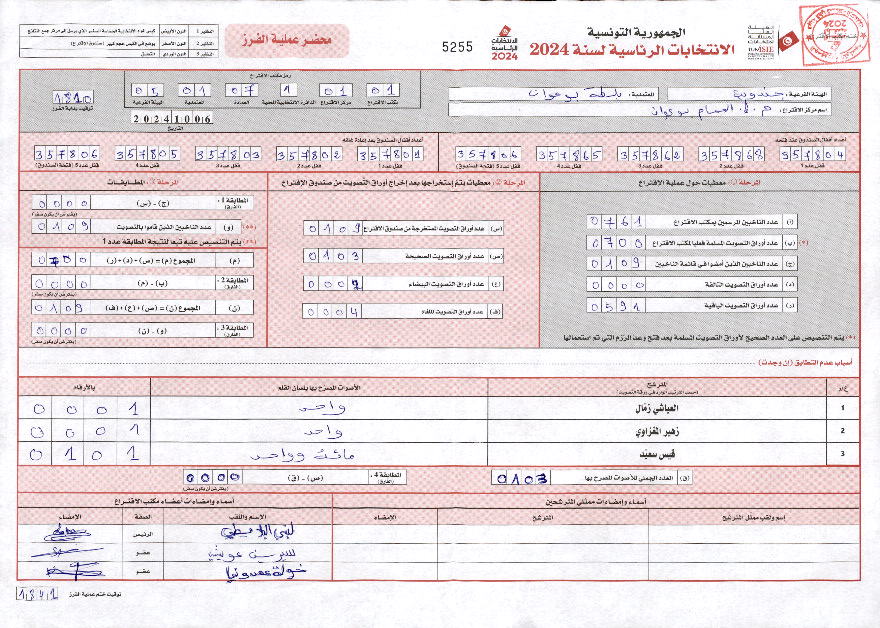 الجمهورية التونسية
الانتخابات الرئاسية لسنة 2024
الانتخابات الرئاسية 2024
5255
محضر عملية الفرز
الهيئة الفرعية: جندوبة
المعتمدية: بلطة بوعوان
اسم مركز الاقتراع:
رمز مكتب الاقتراع
01 01 1 07 01 05
مكتب الاقتراع مركز الاقتراع الدائرة الانتخابية المحلية العمادة المعتمدية الهيئة الفرعية
1810
توقيت بداية الفرز
20241006
التاريخ
أعداد أقفال الصندوق عند فتحه
357804 357868 357862 357865 357806
قفل عدد 1 قفل عدد 2 قفل عدد 3 قفل عدد 4 قفل عدد 5 (فتحة الصندوق)
أعداد أقفال الصندوق بعد إعادة غلقه
357801 357802 357803 357805 357806
قفل عدد 1 قفل عدد 2 قفل عدد 3 قفل عدد 4 قفل عدد 5 (فتحة الصندوق)
المرحلة 1: معطيات حول عملية الاقتراع
(أ) عدد الناخبين المرسمين بمكتب الاقتراع 0761
(*) (ب) عدد أوراق التصويت المسلمة فعليا لمكتب الاقتراع 0700
(ج) عدد الناخبين الذين أمضوا في قائمة الناخبين 0109
(د) عدد أوراق التصويت التالفة 0000
(ر) عدد أوراق التصويت الباقية 0591
(*) يتم التنصيص على العدد الصحيح لأوراق التصويت المسلمة بعد فتح وعد الرزم التي تم استعمالها
المرحلة 2: معطيات يتم إستخراجها بعد إخراج أوراق التصويت من صندوق الاقتراع
(س) عدد أوراق التصويت المستخرجة من صندوق الاقتراع 0109
(ص) عدد أوراق التصويت الصحيحة 0103
(ع) عدد أوراق التصويت البيضاء
(ف) عدد أوراق التصويت الملغاة 0004
المرحلة 3: المطابقات
المطابقة 1: (الفارق) (ج) - (س) 0000
(**) (و) عدد الناخبين الذين قاموا بالتصويت 0109
(**) يتم التنصيص عليه تبعا لنتيجة المطابقة عدد 1
(م) المجموع (م) = (س) + (د) + (ر) 0700
المطابقة 2: (الفارق) (ب) - (م) 0000
(ن) المجموع (ن) = (ص) + (ع) + (ف) 0109
المطابقة 3: (الفارق) (و) - (ن) 0000
أسباب عدم التطابق (إن وجدت)
ع/د المترشح الأصوات المصرح بها بلسان القلم بالأرقام
1 العياشي زمال واحد 0001
2 زهير المغزاوي واحد 0001
3 قيس سعيد مائة وواحد 0101
(ق) العدد الجملي للأصوات المصرح بها 0103
المطابقة 4: (الفارق) (ص) - (ق) 0000
أسماء وإمضاءات ممثلي المترشحين
أسماء وإمضاءات أعضاء مكتب الاقتراع
إسم ولقب ممثل المترشح المترشح الإمضاء الإسم واللقب الصفة الإمضاء
الرئيس
عضو
عضو
توقيت ختم عملية الفرز 1841